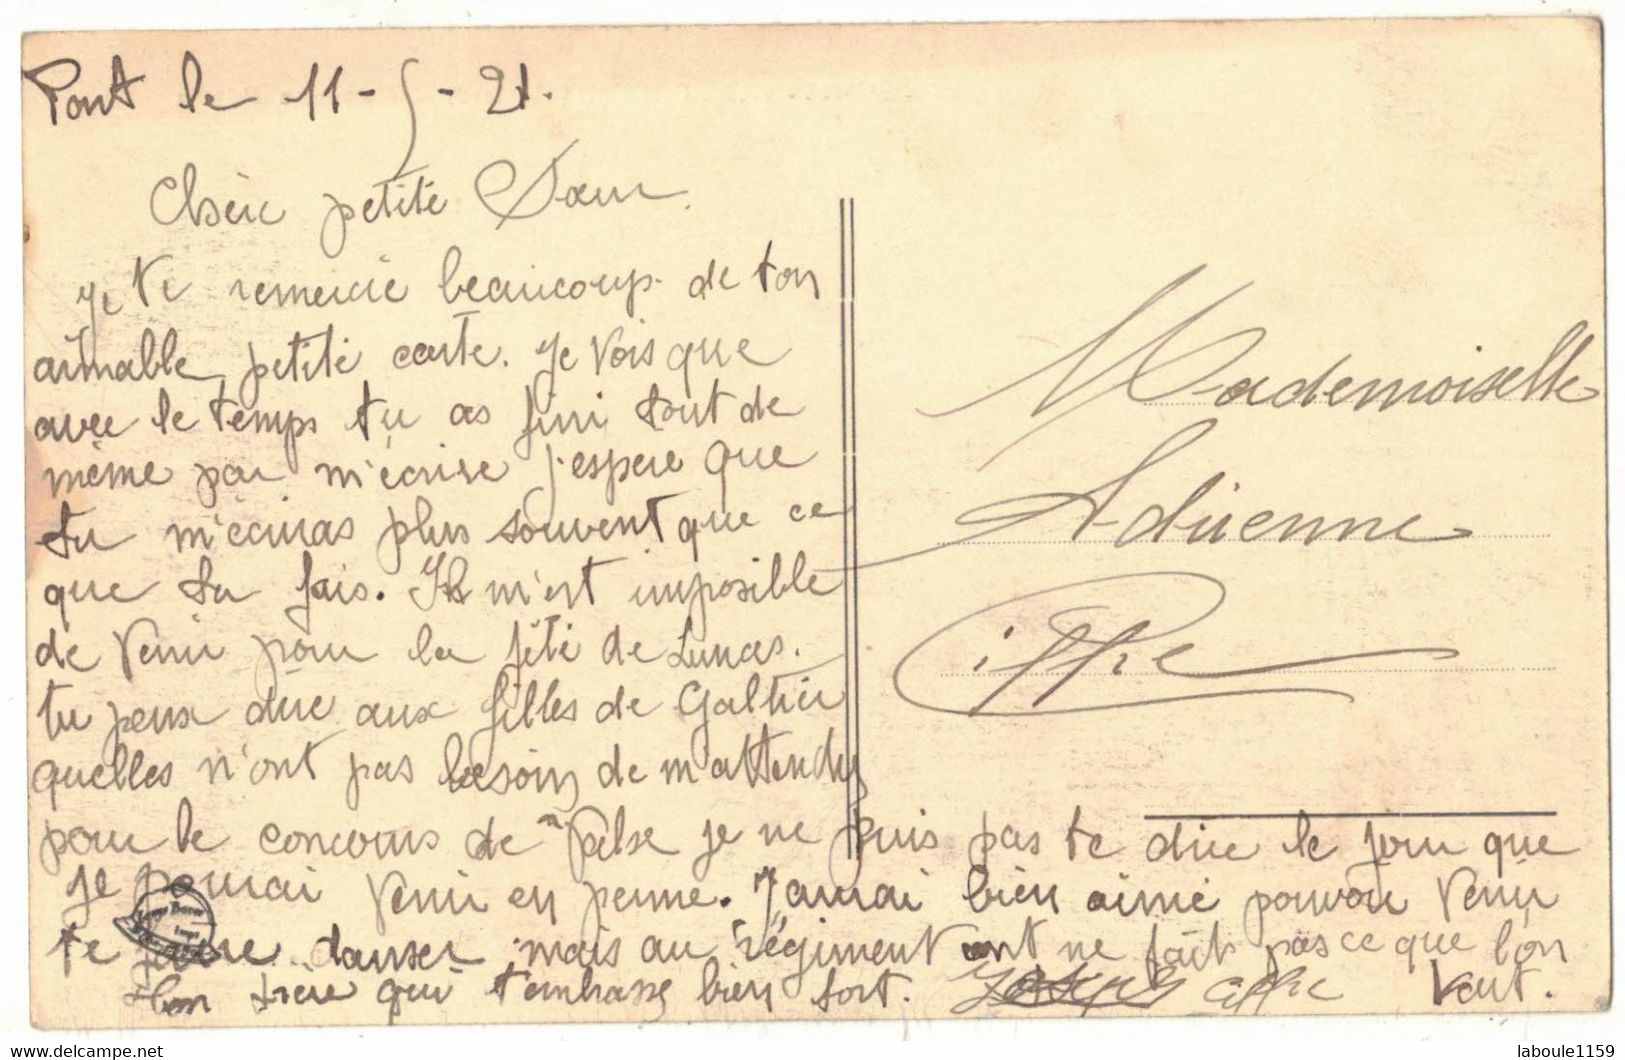 Pont le 11-5-21.
Chère petite Sœur.
Je te remercie beaucoup de ton
aimable petite carte. Je vois que
avec le temps tu as fini tout de
même par m'écrire j'espere que
tu m'écriras plus souvent que ce
que tu fais. Il m'est imposible
de venir pour la fête de Lunas.
tu peux dire aux filles de Galtier
quelles n'ont pas besoin de m'attendre
pour le concours de valse je ne puis pas te dire le jour que
je pourrai venir en perme. J'aurai bien aimé pouvoir venir
te faire danser mais au régiment ont ne fait pas ce que l'on
Ton frère qui t'embrasse bien fort. Joseph Ciffre veut.
Mademoiselle
Adrienne
Ciffre
www.delcampe.net
laboule1159